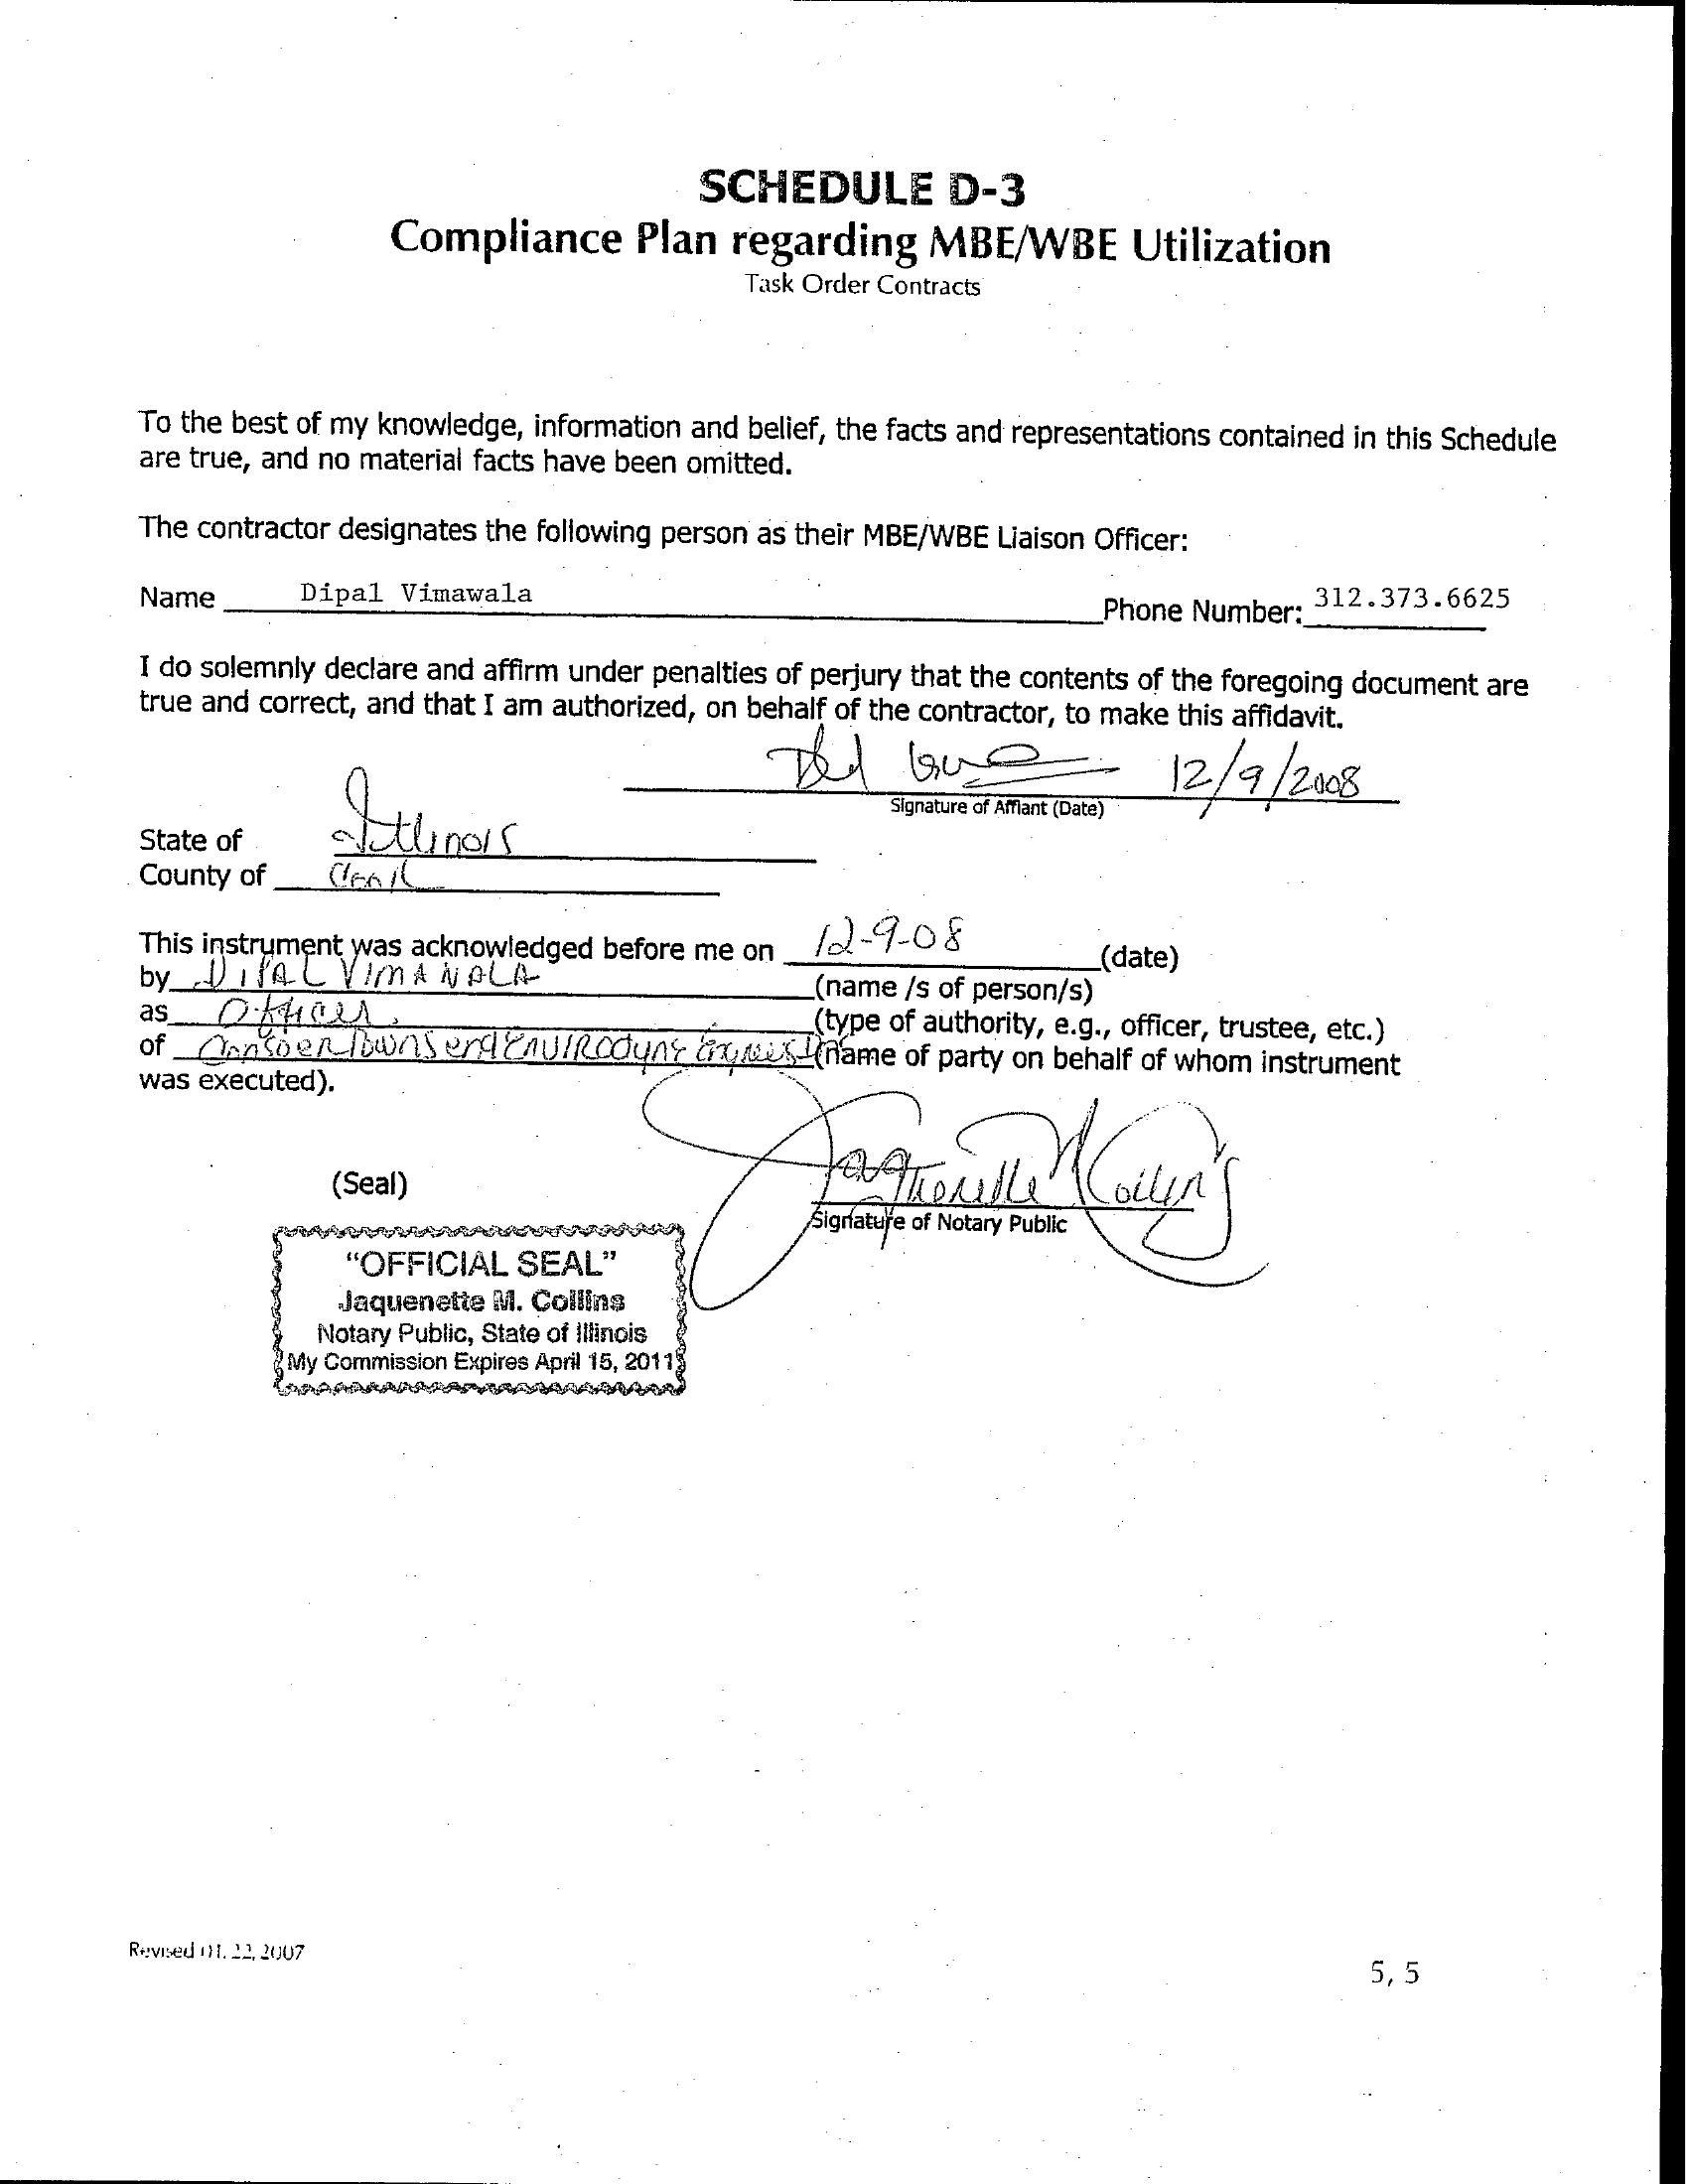 SCHEDULE D-3
Compliance Plan regarding MBE/WBE Utilization
Task Order Contracts
To the best of my knowledge, information and belief, the facts and representations contained in this Schedule
are true, and no material facts have been omitted.
The contractor designates the following person as their MBE/WBE Liaison Officer:
Name Dipal Vimawala Phone Number: 312.373.6625
I do solemnly declare and affirm under penalties of perjury that the contents of the foregoing document are
true and correct, and that I am authorized, on behalf of the contractor, to make this affidavit.
12/9/2008
Signature of Affiant (Date)
State of Illinois
County of Cook
This instrument was acknowledged before me on 12-9-08 (date)
by DIPAL VIMAWALA (name /s of person/s)
as Officer (type of authority, e.g., officer, trustee, etc.)
of Townsend Envirodyne (name of party on behalf of whom instrument
was executed).
Jaquenette M Collins
(Seal)
Signature of Notary Public
"OFFICIAL SEAL"
Jaquenette M. Collins
Notary Public, State of Illinois
My Commission Expires April 15, 2011
Revised 01.22.2007
5, 5